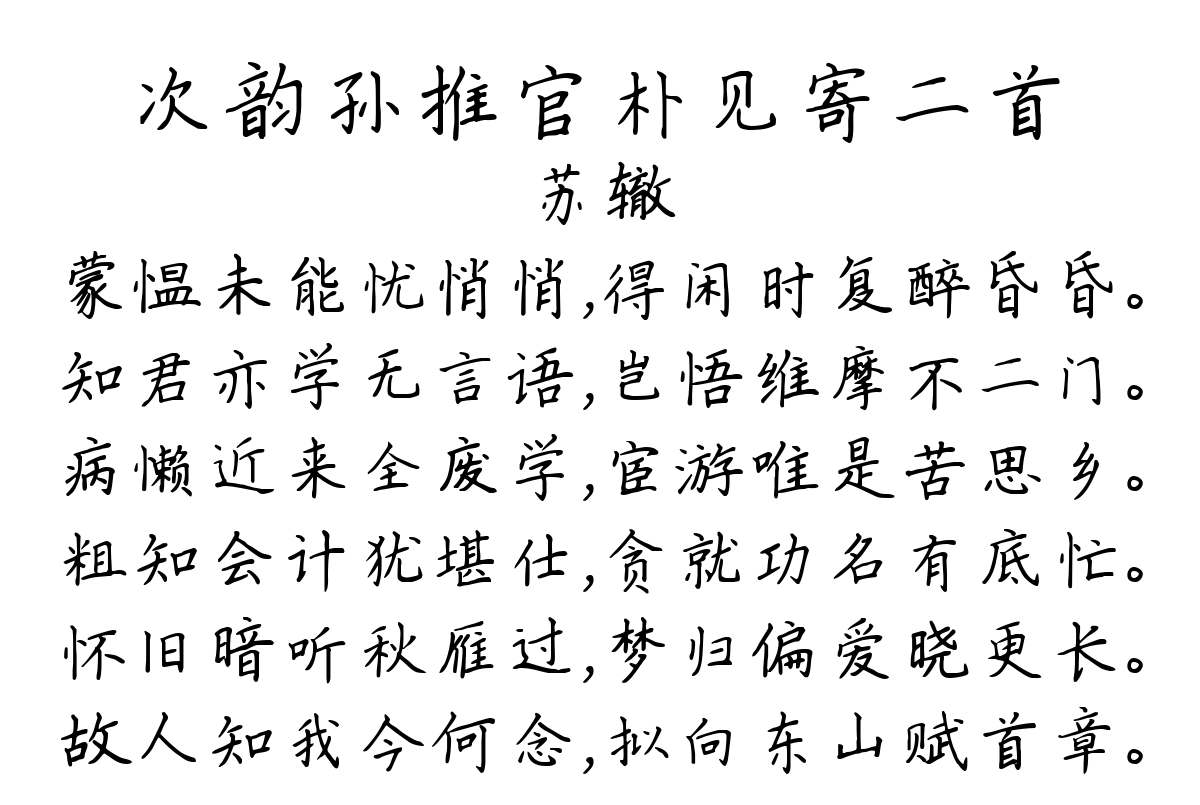 次韵孙推官朴见寄二首
苏辙
蒙愠未能忧悄悄,得闲时复醉昏昏。
知君亦学无言语,岂悟维摩不二门。
病懒近来全废学,宦游唯是苦思乡。
粗知会计犹堪仕,贪就功名有底忙。
怀旧暗听秋雁过,梦归偏爱晓更长。
故人知我今何念,拟向东山赋首章。